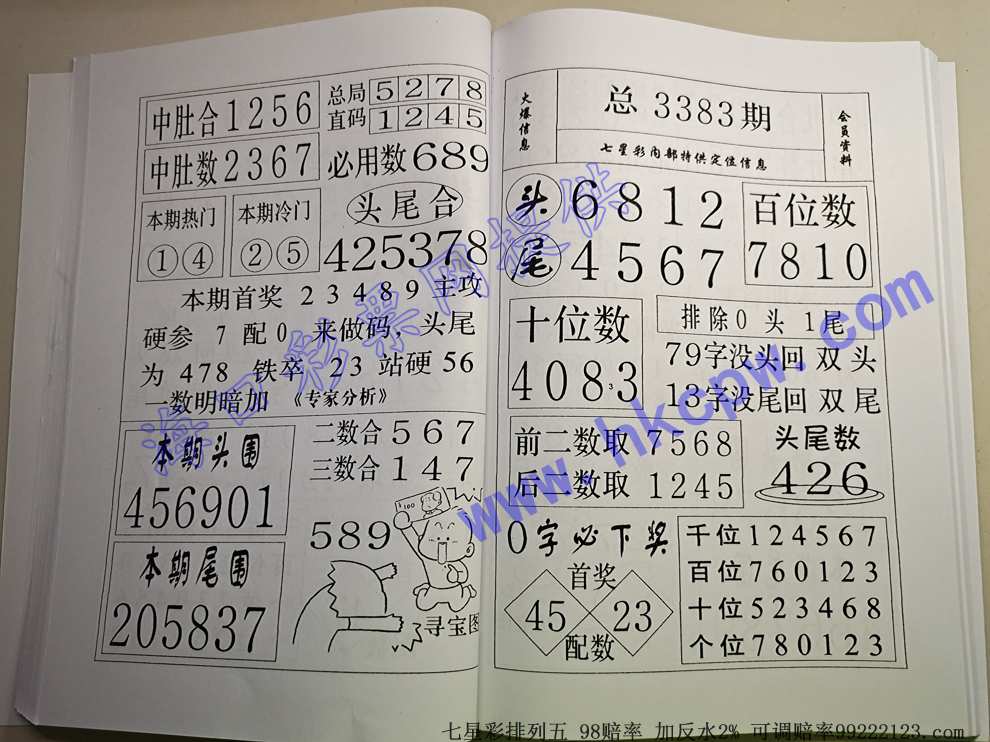 中肚合1256
总局 5278
直码 1245
中肚数2367
必用数689
本期热门
①④
本期冷门
②⑤
头尾合
425378
本期首奖 23489 主攻
硬参 7 配 0 来做码，头尾
为 478 铁卒 23 站硬 56
一数明暗加 《专家分析》
本期头围
456901
二数合 567
三数合 147
本期尾围
205837
589
$100
寻宝图
火爆信息
总 3383期
七星彩内部特供定位信息
会员资料
头 6812
尾 4567
百位数
7810
十位数
4083
排除0 头 1尾
79字没头回 双 头
13字没尾回 双 尾
前二数取 7568
后二数取 1245
头尾数
426
0字必下奖
首奖
45 23
配数
千位124567
百位760123
十位523468
个位780123
海口彩票网提供
www.hkcpw.com
七星彩排列五 98赔率 加反水2% 可调赔率99222123.com